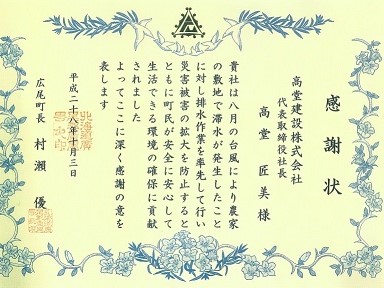 感謝状
高堂建設株式会社
代表取締役社長
高堂匠美様
貴社は八月の台風により農家
の敷地で滞水が発生したこと
に対し排水作業を率先して行い
災害被害の拡大を防止すると
ともに町民が安全に安心して
生活できる環境の確保に貢献
されました
よってここに深く感謝の意を
表します
平成二十八年十月三日
広尾町長 村瀬 優